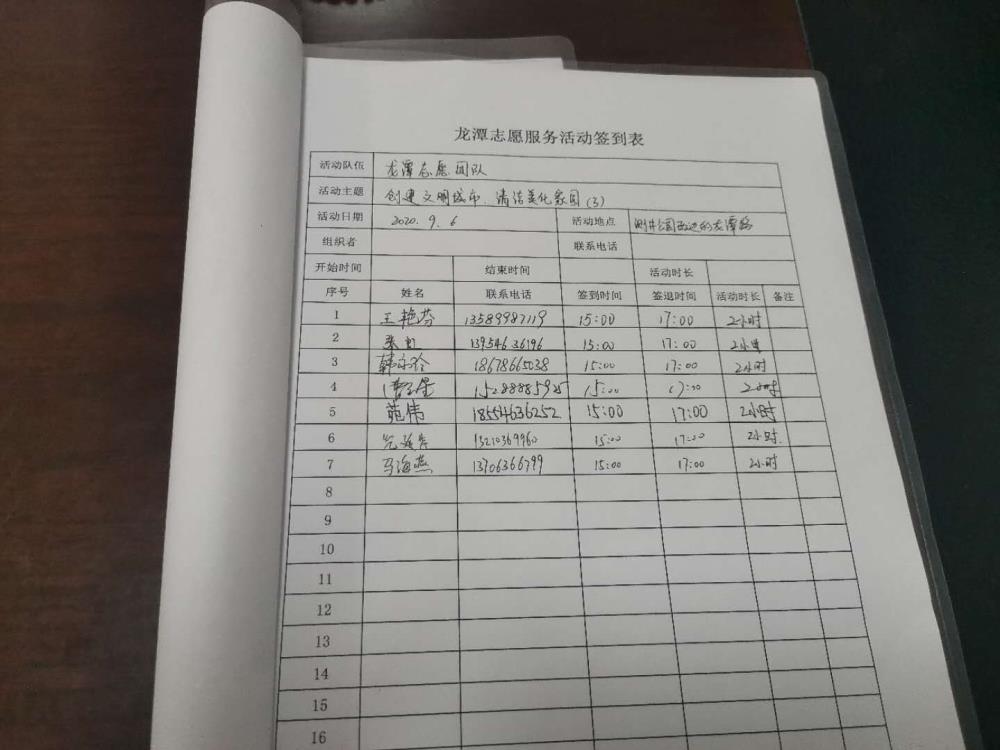 龙潭志愿服务活动签到表
活动队伍 龙潭志愿团队
活动主题 创建文明城市、清洁美化家园(3)
活动日期 2020.9.6 活动地点 龙潭路
组织者 联系电话
开始时间 结束时间 活动时长
序号 姓名 联系电话 签到时间 签退时间 活动时长 备注
1 王艳芬 13589987119 15:00 17:00 2小时
2 13954636196 15:00 17:00 2小时
3 18678665038 15:00 17:00 2小时
4 15:00 17:00 2小时
5 范伟 18554636252 15:00 17:00 2小时
6 13210369960 15:00 17:00 2小时.
7 马海燕 13706366799 15:00 17:00 2小时
8
9
10
11
12
13
14
15
16